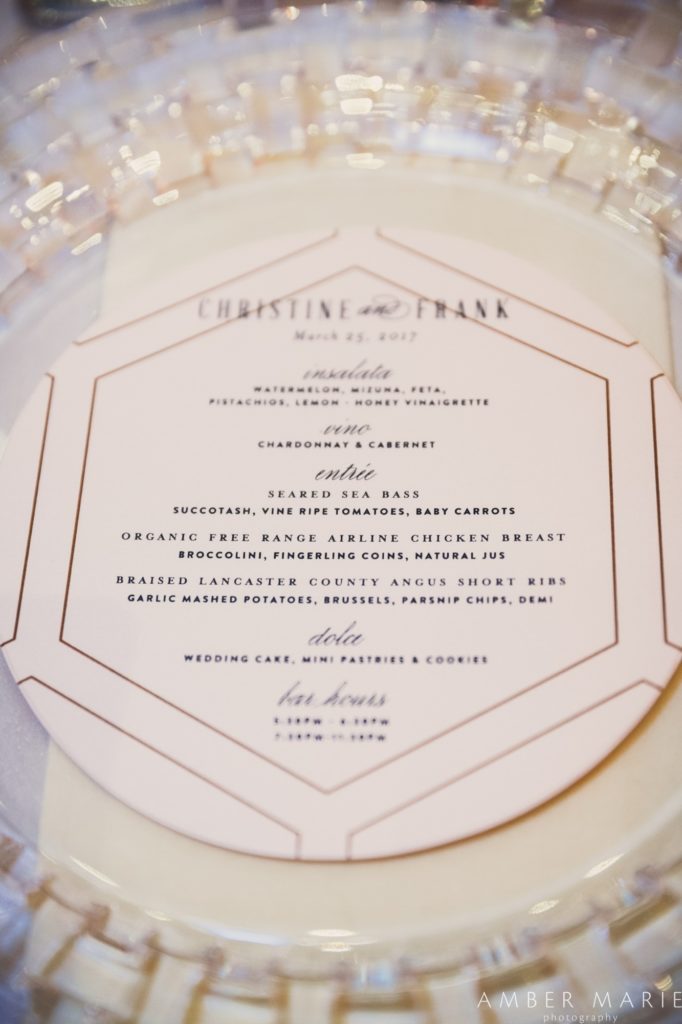 CHRISTINE and FRANK
March 25, 2017
insalata
WATERMELON, MIZUNA, FETA,
PISTACHIOS, LEMON - HONEY VINAIGRETTE
vino
CHARDONNAY & CABERNET
entrée
SEARED SEA BASS
SUCCOTASH, VINE RIPE TOMATOES, BABY CARROTS
ORGANIC FREE RANGE AIRLINE CHICKEN BREAST
BROCCOLINI, FINGERLING COINS, NATURAL JUS
BRAISED LANCASTER COUNTY ANGUS SHORT RIBS
GARLIC MASHED POTATOES, BRUSSELS, PARSNIP CHIPS, DEMI
dolce
WEDDING CAKE, MINI PASTRIES & COOKIES
bar hours
AMBER MARIE
photography